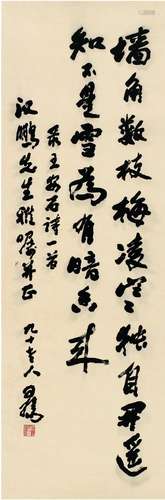 墙角数枝梅凌寒独自開遥
知不是雪為有暗香来
录王安石詩一首
汉鹏先生雅嘱并正
九十老人